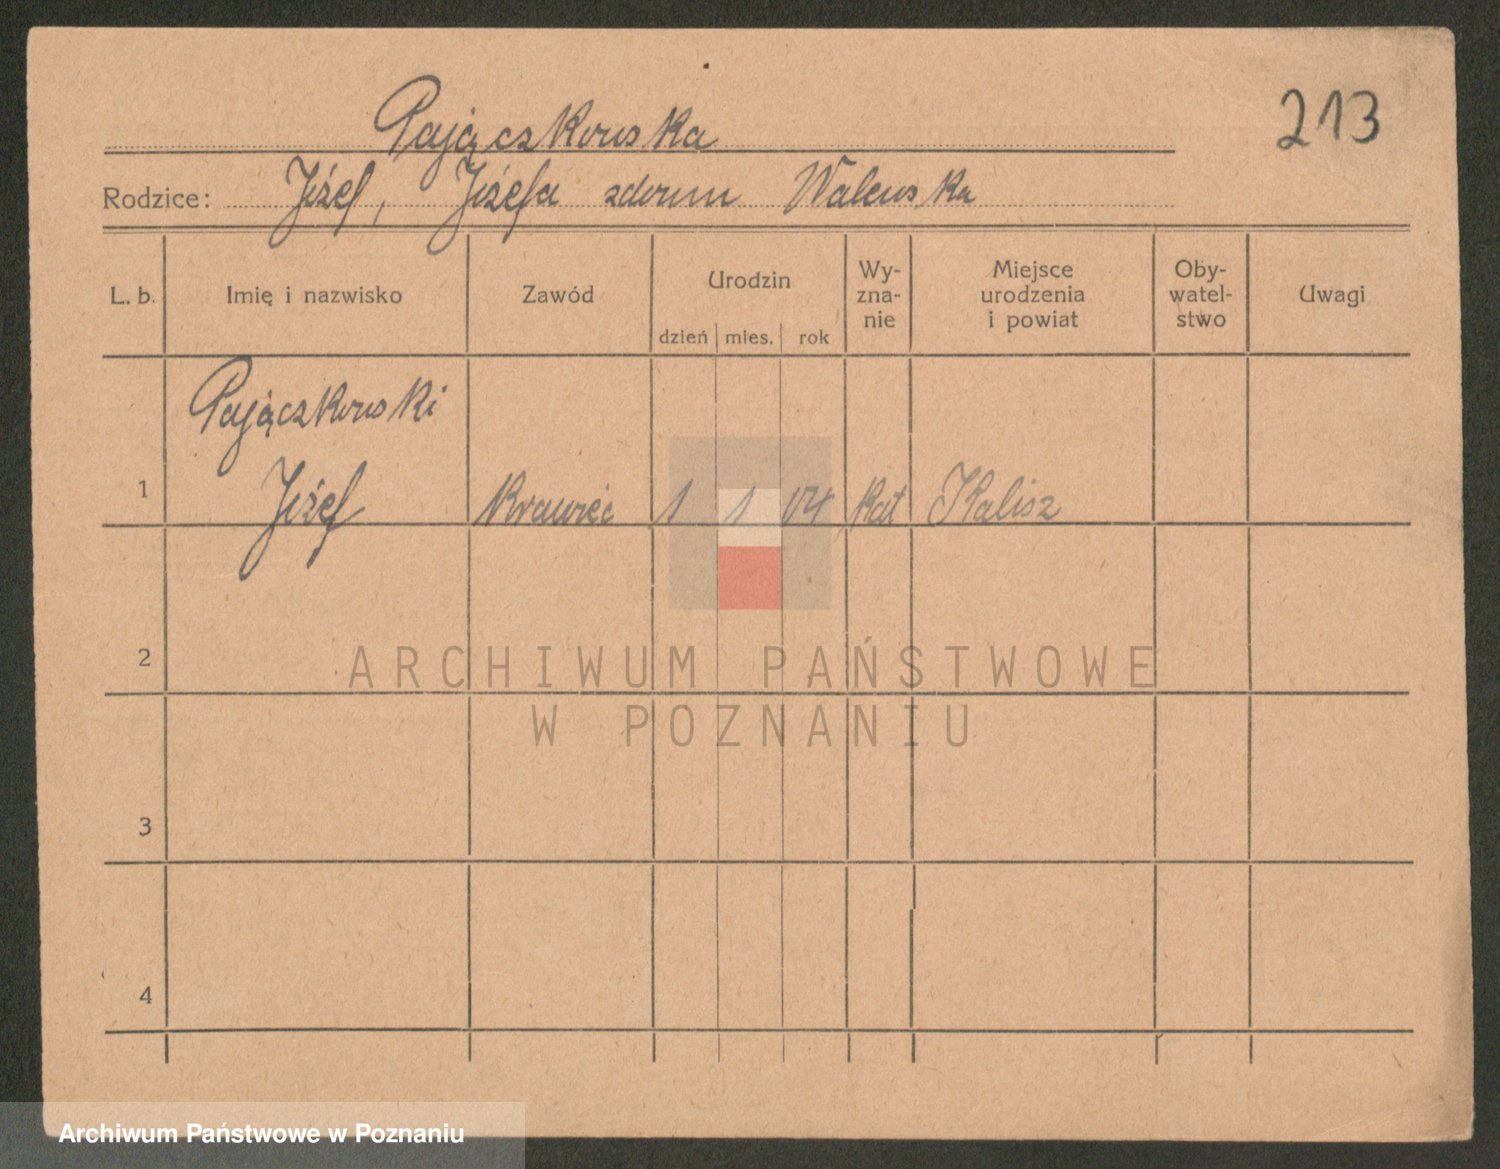 213
Pajączkowska
Rodzice: Józef, Józefa zdomu Walewska
L. b. Imię i nazwisko Zawód Urodzin dzień mies. rok Wy-zna-nie Miejsce urodzenia i powiat Oby-watel-stwo Uwagi
Pajączkowski
1 Józef Krawiec 1 1 04 Kat Kalisz
2
ARCHIWUM PAŃSTWOWE
W POZNANIU
3
4
Archiwum Państwowe w Poznaniu